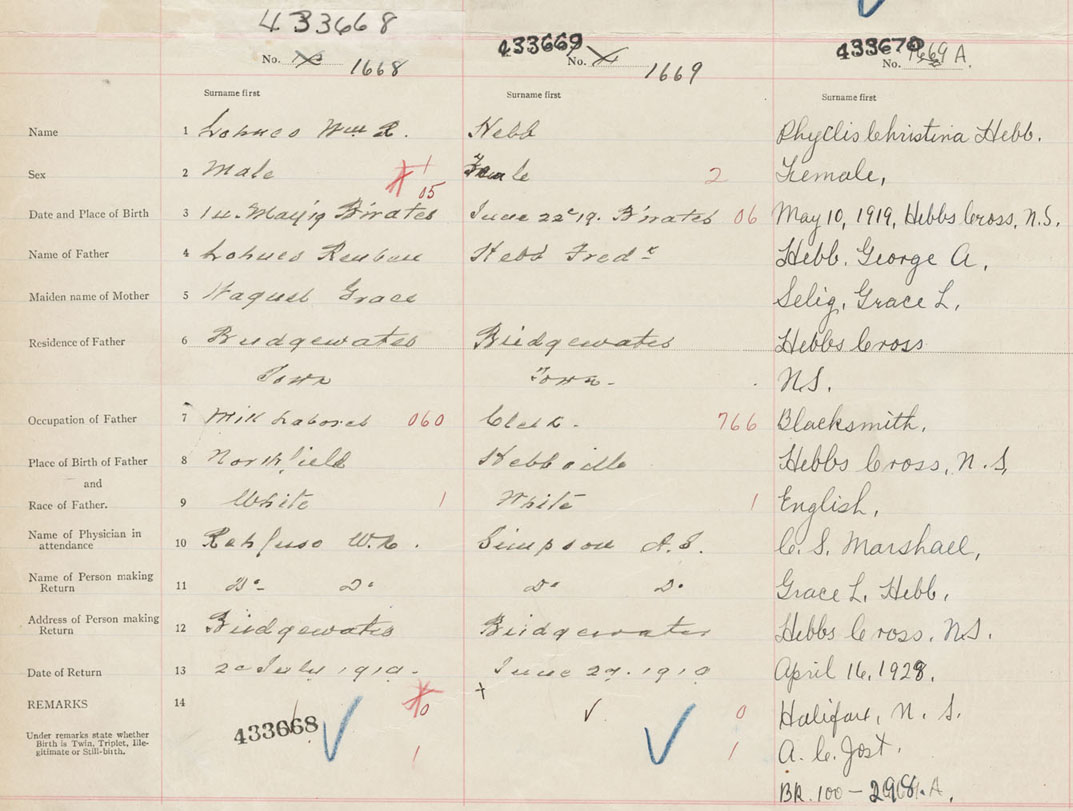 433668
433669
433670
No. 1668
No. 1669
No. 1669 A.
Surname first
Surname first
Surname first
Name 1 Lohnes Wm R. Hebb Phyllis Christina Hebb.
Sex 2 Male 1 05 Female 2 Female,
Date and Place of Birth 3 14. May '19 B'water June 22d 19. B'water 06 May 10, 1919, Hebbs Cross, N.S.
Name of Father 4 Lohnes Reuben Hebb Fredk Hebb. George A.
Maiden name of Mother 5 Grace Selig, Grace L.
Residence of Father 6 Bridgewater Bridgewater Hebbs Cross
Town Town. N.S.
Occupation of Father 7 Mill Laborer 060 Clerk. 766 Blacksmith,
Place of Birth of Father 8 Northfield Hebbville Hebbs Cross, N.S,
and
Race of Father. 9 White 1 White 1 English,
Name of Physician in
attendance 10 Rehfuss W.N. Simpson A.S. C. S. Marshall,
Name of Person making
Return 11 Do Do Do Do Grace L. Hebb,
Address of Person making
Return 12 Bridgewater Bridgewater Hebbs Cross, N.S.
Date of Return 13 2d July 1919. June 27. 1919 April 16, 1928.
REMARKS 14 0 Halifax, N. S.
433668 0
Under remarks state whether
Birth is Twin, Triplet, Ille-
gitimate or Still-birth. 1 1 A. C. Jost.
BR. 100-298.A.